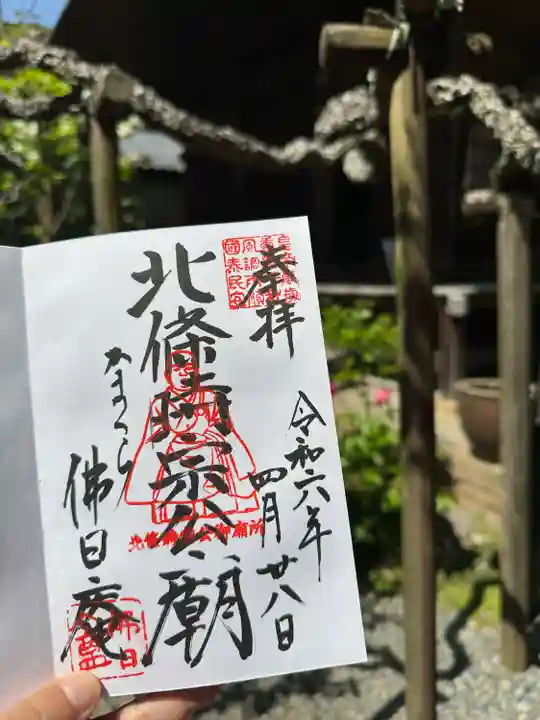 奉拝
令和六年
四月廿八日
北條時宗公廟
かまくら
佛日庵
北條時宗公御廟所